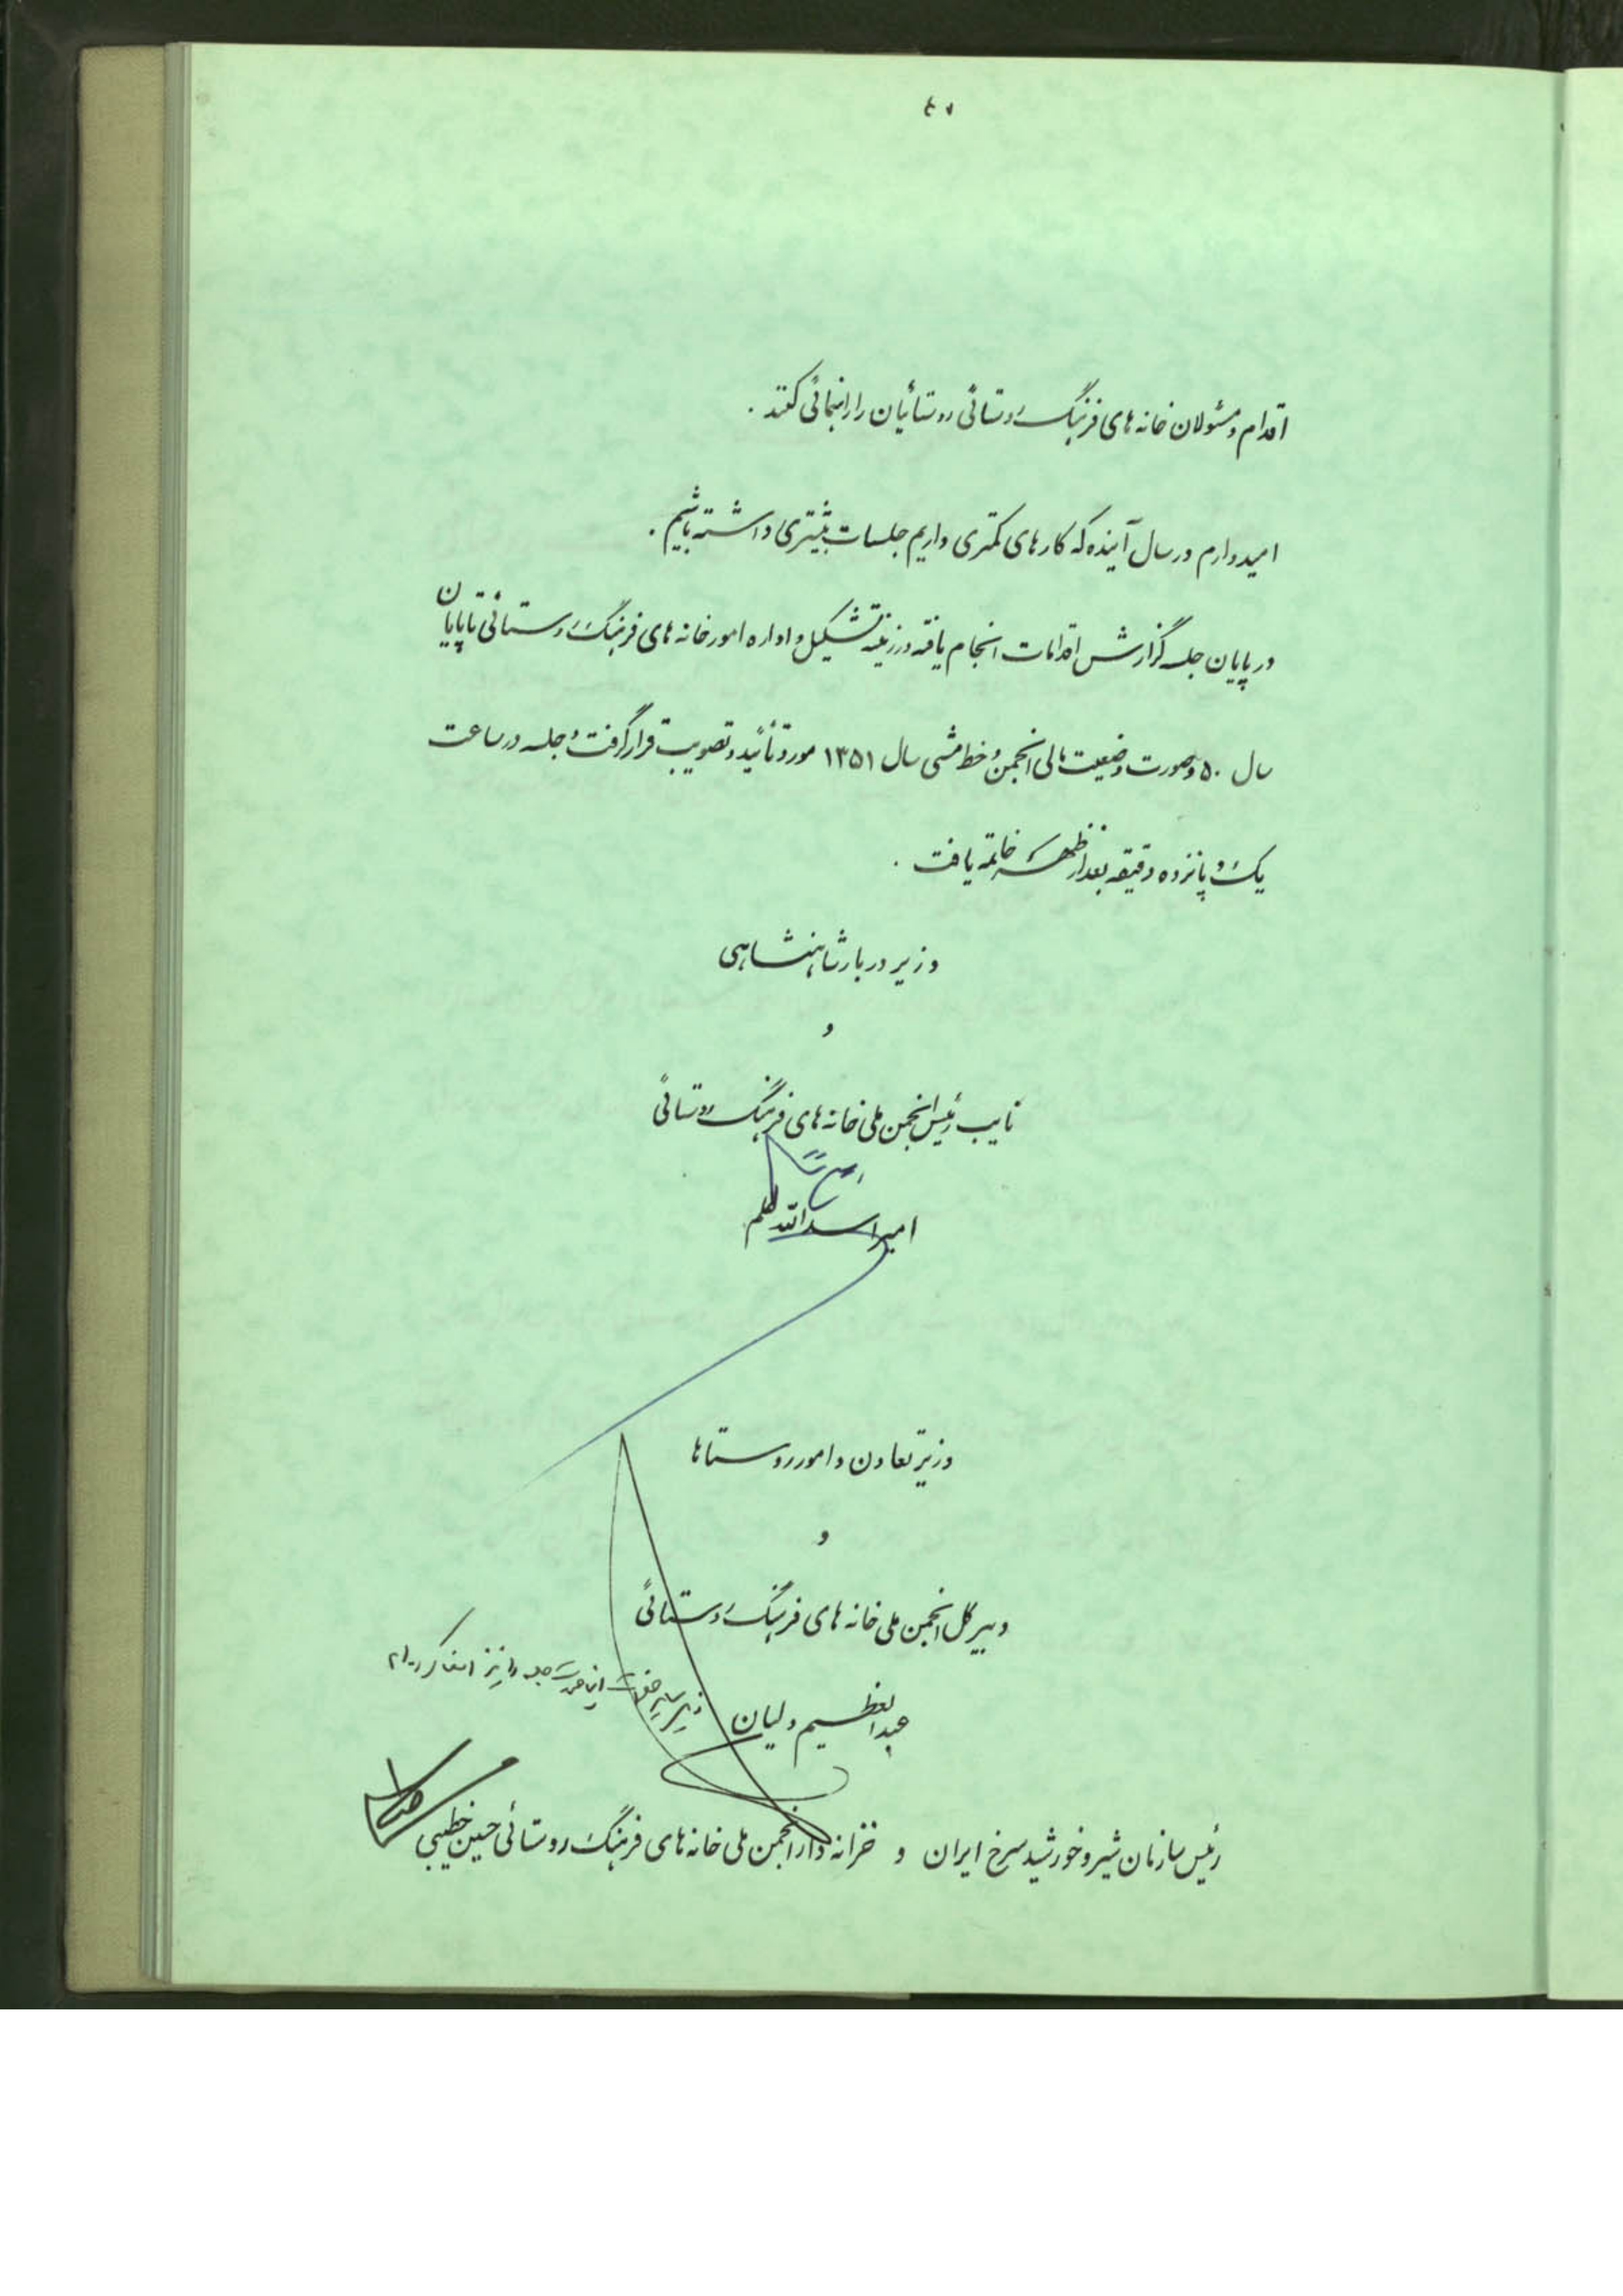 اقدام و مسئولان خانه های فرهنگ روستائی روستائیان را راهنمائی کنند .
امیدوارم در سال آینده که کارهای کمتری داریم جلسات بیشتری داشته باشیم .
در پایان جلسه گزارش اقدامات انجام یافته در زمینه تشکیل و اداره امور خانه های فرهنگ روستائی تا پایان
سال ۵۰ و صورت وضعیت مالی انجمن و خط مشی سال ۱۳۵۱ مورد تأئید و تصویب قرار گرفت و جلسه در ساعت
یک و پانزده دقیقه بعد از ظهر خاتمه یافت .
وزیر دربار شاهنشاهی
و
نایب رئیس انجمن ملی خانه های فرهنگ روستائی
امیر اسدالله علم
وزیر تعاون و امور روستاها
و
دبیر کل انجمن ملی خانه های فرهنگ روستائی
عبدالعظیم ولیان
رئیس سازمان شیر و خورشید سرخ ایران و خزانه دار انجمن ملی خانه های فرهنگ روستائی حسین خطیبی